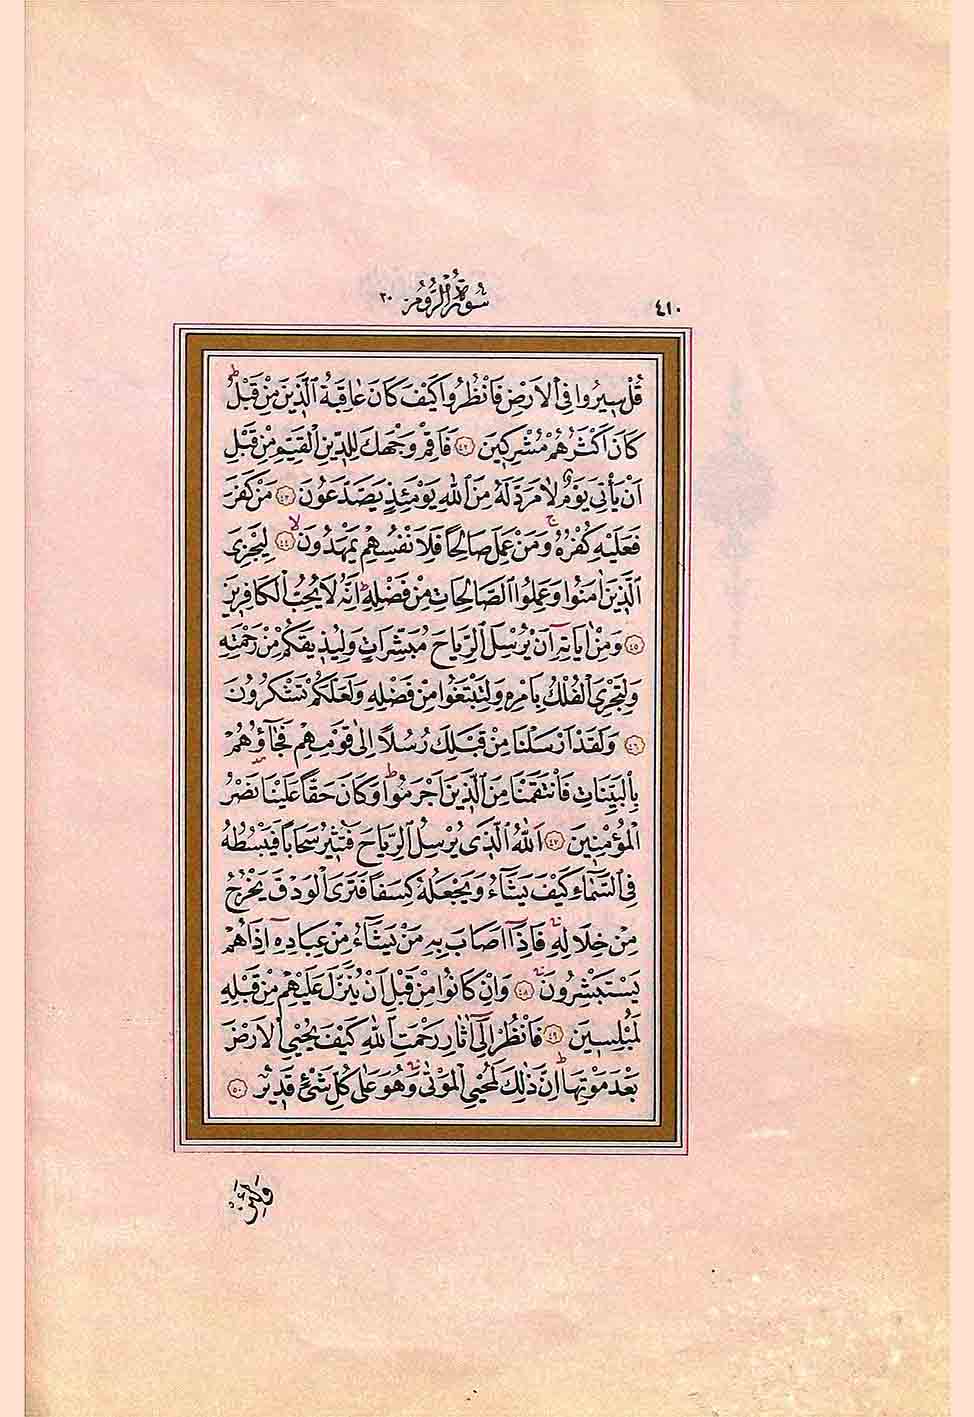 ٤١٠
سُورَةُ الرُّومِ ٣٠
قُلْ سِيرُوا فِي الْاَرْضِ فَانْظُرُوا كَيْفَ كَانَ عَاقِبَةُ الَّذِينَ مِنْ قَبْلُۜ
كَانَ اَكْثَرُهُمْ مُشْرِكِينَ ﴿٤٢﴾ فَاَقِمْ وَجْهَكَ لِلدِّينِ الْقَيِّمِ مِنْ قَبْلِ
اَنْ يَأْتِيَ يَوْمٌ لَا مَرَدَّ لَهُ مِنَ اللّٰهِ يَوْمَئِذٍ يَصَّدَّعُونَ ﴿٤٣﴾ مَنْ كَفَرَ
فَعَلَيْهِ كُفْرُهُۚ وَمَنْ عَمِلَ صَالِحًا فَلِاَنْفُسِهِمْ يَمْهَدُونَۙ ﴿٤٤﴾ لِيَجْزِيَ
الَّذِينَ اٰمَنُوا وَعَمِلُوا الصَّالِحَاتِ مِنْ فَضْلِهِۜ اِنَّهُ لَا يُحِبُّ الْكَافِرِينَ
﴿٤٥﴾ وَمِنْ اٰيَاتِهِٓ اَنْ يُرْسِلَ الرِّيَاحَ مُبَشِّرَاتٍ وَلِيُذِيقَكُمْ مِنْ رَحْمَتِهِ
وَلِتَجْرِيَ الْفُلْكُ بِاَمْرِهِ وَلِتَبْتَغُوا مِنْ فَضْلِهِ وَلَعَلَّكُمْ تَشْكُرُونَ
﴿٤٦﴾ وَلَقَدْ اَرْسَلْنَا مِنْ قَبْلِكَ رُسُلًا اِلٰى قَوْمِهِمْ فَجَٓاؤُ۫هُمْ
بِالْبَيِّنَاتِ فَانْتَقَمْنَا مِنَ الَّذِينَ اَجْرَمُواۜ وَكَانَ حَقًّا عَلَيْنَا نَصْرُ
الْمُؤْمِنِينَ ﴿٤٧﴾ اَللّٰهُ الَّذِي يُرْسِلُ الرِّيَاحَ فَتُثِيرُ سَحَابًا فَيَبْسُطُهُ
فِي السَّمَٓاءِ كَيْفَ يَشَٓاءُ وَيَجْعَلُهُ كِسَفًا فَتَرَى الْوَدْقَ يَخْرُجُ
مِنْ خِلَالِهِۚ فَاِذَٓا اَصَابَ بِهِ مَنْ يَشَٓاءُ مِنْ عِبَادِهِٓ اِذَا هُمْ
يَسْتَبْشِرُونَۚ ﴿٤٨﴾ وَاِنْ كَانُوا مِنْ قَبْلِ اَنْ يُنَزَّلَ عَلَيْهِمْ مِنْ قَبْلِهِ
لَمُبْلِسِينَ ﴿٤٩﴾ فَانْظُرْ اِلٰٓى اٰثَارِ رَحْمَتِ اللّٰهِ كَيْفَ يُحْيِي الْاَرْضَ
بَعْدَ مَوْتِهَاۜ اِنَّ ذٰلِكَ لَمُحْيِي الْمَوْتٰىۚ وَهُوَ عَلٰى كُلِّ شَيْءٍ قَدِيرٌ ﴿٥٠﴾
وَلَئِنْ